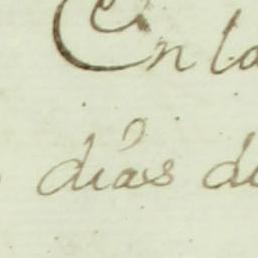 En la
días de